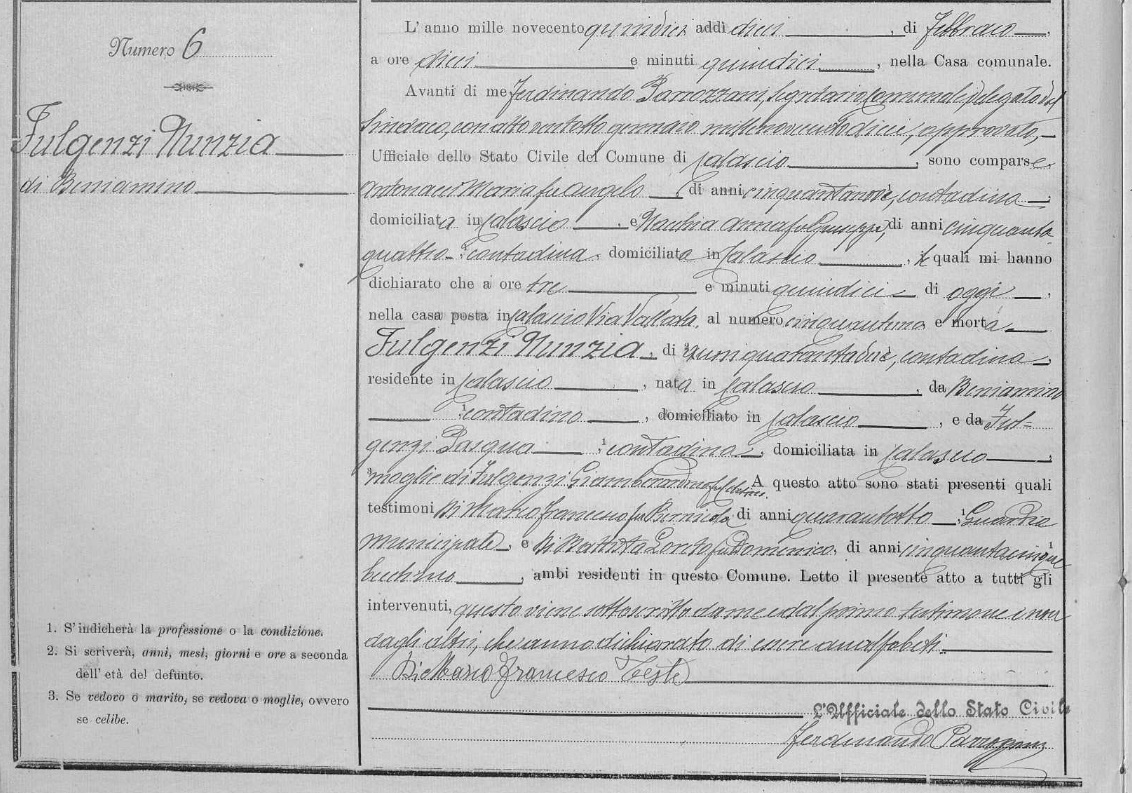 Numero 6
Fulgenzi Nunzia
di Beniamino
1. S'indicherà la professione o la condizione.
2. Si scriverà, anni, mesi, giorni e ore a seconda
dell'età del defunto.
3. Se vedovo o marito, se vedova o moglie, ovvero
se celibe.
L'anno mille novecento quindici addì dieci, di Febbraio,
a ore dieci e minuti quindici, nella Casa comunale.
Avanti di me Ferdinando Parrozzani, Segretario Comunale delegato dal
Sindaco, con atto ventotto gennaio millenovecentodieci, approvato,
Ufficiale dello Stato Civile del Comune di Calascio, sono comparse
Antonacci Maria fu Angelo di anni cinquantanove, contadina
domiciliata in Calascio, e Vecchia Anna fu Giuseppe, di anni cinquanta
quattro contadina domiciliata in Calascio, le quali mi hanno
dichiarato che a ore tre e minuti quindici di oggi,
nella casa posta in Calascio Via Vallata, al numero cinquantuno è morta
Fulgenzi Nunzia, di anni quarantadue, contadina
residente in Calascio, nata in Calascio, da Beniamino
1 contadino, domiciliato in Calascio, e da Ful-
genzi Pasqua 1 contadina, domiciliata in Calascio,
3 moglie di Fulgenzi Giambernardino fu A questo atto sono stati presenti quali
testimoni Di Mario Francesco fu Bernardo di anni quarantotto 1 Guardia
Municipale, e Di Battista Loreto fu Domenico, di anni cinquantacinque 1
becchino, ambi residenti in questo Comune. Letto il presente atto a tutti gli
intervenuti, questo viene sottoscritto da me e dal primo testimone e non
dagli altri, che anno dichiarato di essere analfabeti.
Di Mario Francesco Teste
L'Ufficiale dello Stato Civile
Ferdinando Parrozzani